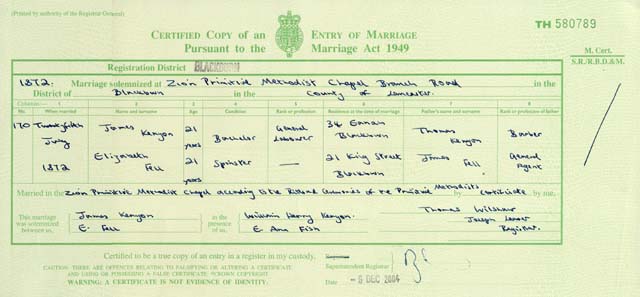 (Printed by authority of the Registrar General)
CERTIFIED COPY of an ENTRY OF MARRIAGE
Pursuant to the Marriage Act 1949
TH 580789
M. Cert.
S.R./R.B.D.&M.
Registration District BLACKBURN
1872. Marriage solemnized at Zion Primitive Methodist Chapel Branch Road in the
District of Blackburn in the County of Lancaster
Columns:— 1 2 3 4 5 6 7 8
No. When married Name and surname Age Condition Rank or profession Residence at the time of marriage Father's name and surname Rank or profession of father
170 July 1872 James Kenyon 21 years Bachelor General Labourer 34 Blackburn Thomas Kenyon Barber
Elizabeth Fell 21 years Spinster — 21 King Street Blackburn James Fell General Agent
Married in the Zion Primitive Methodist Chapel according to the Rites and Ceremonies of the Primitive Methodists by certificate by me,
This marriage was solemnized between us, James Kenyon E. Fell in the presence of us, William Henry Kenyon E. Ann Fish Thomas Wilshaw Joseph Registrar
Certified to be a true copy of an entry in a register in my custody.
Superintendent Registrar
CAUTION: THERE ARE OFFENCES RELATING TO FALSIFYING OR ALTERING A CERTIFICATE
AND USING OR POSSESSING A FALSE CERTIFICATE ©CROWN COPYRIGHT
WARNING: A CERTIFICATE IS NOT EVIDENCE OF IDENTITY.
Date - 6 DEC 2004